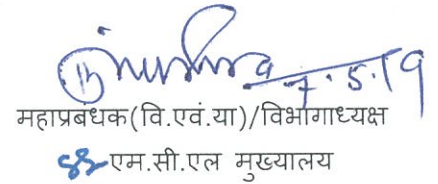 7.5.19
महाप्रबंधक(वि.एवं.या)/विभागाध्यक्ष
एम.सी.एल मुख्यालय